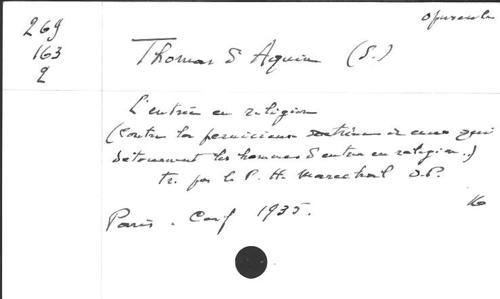 opuscula
269
163
2
Thomas d'Aquin (S.)
L'entrée en religion
(contre la pernicieuse doctrine de ceux qui
détournent les hommes d'entrer en religion.)
tr. par le P. H. Maréchal O.P.
Paris. Cerf 1935.
16